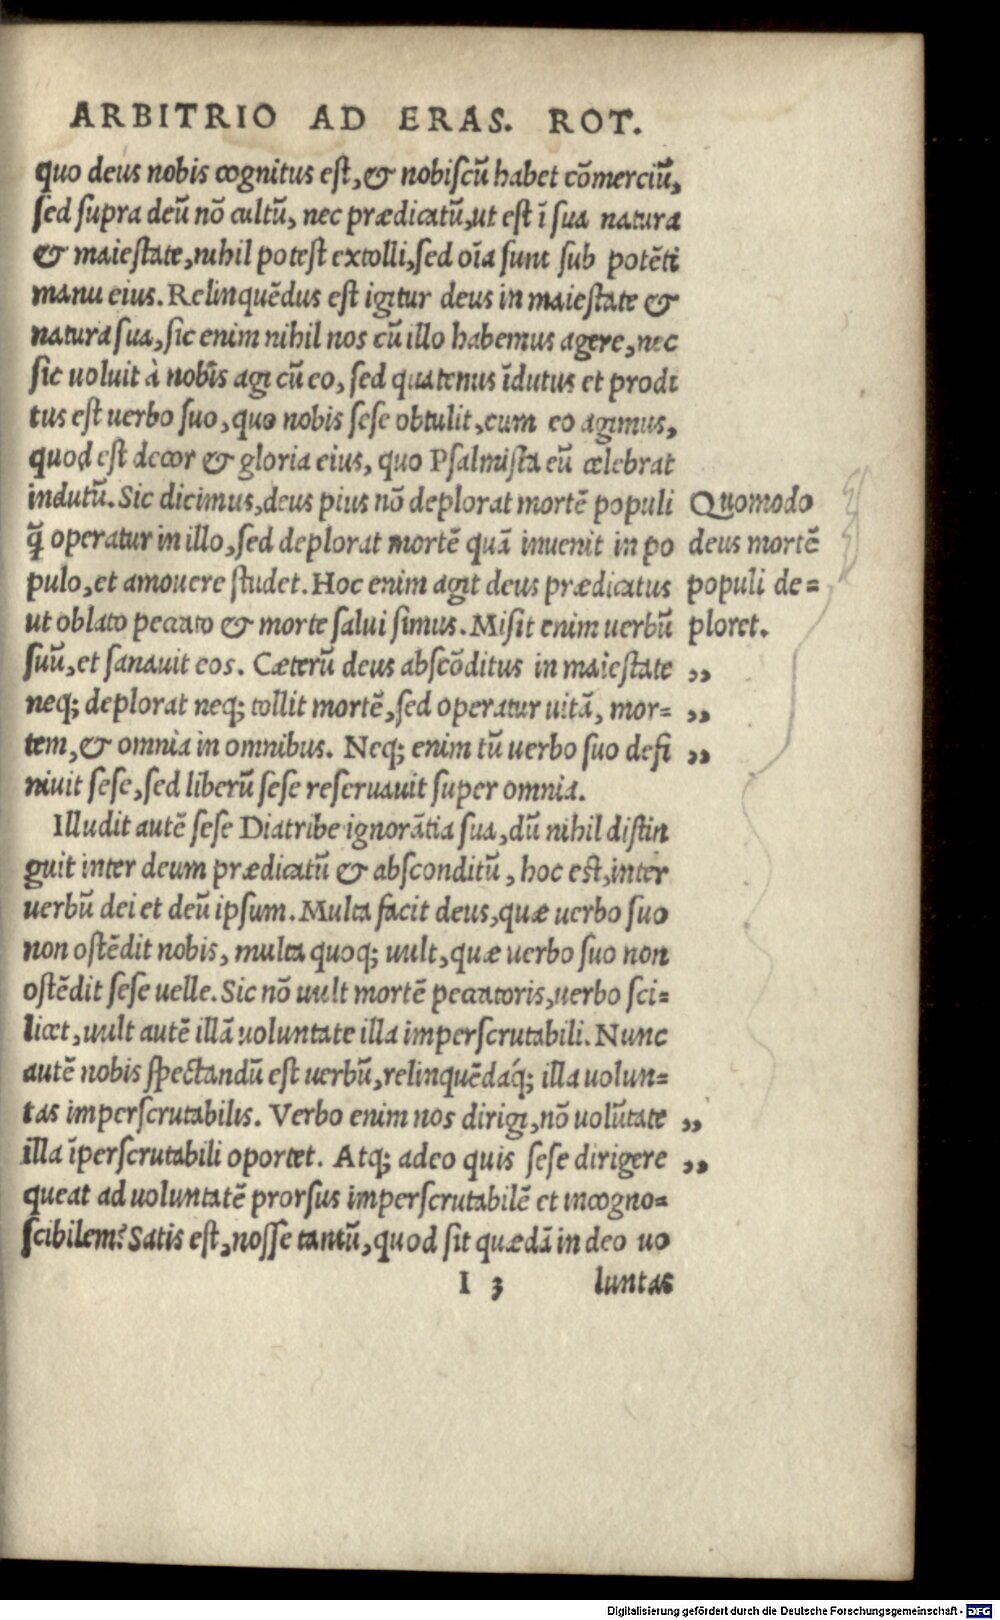 ARBITRIO AD ERAS. ROT.
quo deus nobis cognitus est, & nobiscū habet cōmerciū,
sed supra deū nō cultū, nec prædicatū, ut est ī sua natura
& maiestate, nihil potest extolli, sed oīa sunt sub potēti
manu eius. Relinquēdus est igitur deus in maiestate &
natura sua, sic enim nihil nos cū illo habemus agere, nec
sic uoluit à nobis agi cū eo, sed quatenus īdutus et prodi
tus est uerbo suo, quo nobis sese obtulit, cum eo agimus,
quod est decor & gloria eius, quo Psalmista eū celebrat
indutū. Sic dicimus, deus pius nō deplorat mortē populi
q̄ operatur in illo, sed deplorat mortē quā inuenit in po
pulo, et amouere studet. Hoc enim agit deus prædicatus
ut oblato peccato & morte salui simus. Misit enim uerbū
suū, et sanauit eos. Cæterū deus abscōditus in maiestate
neq; deplorat neq; tollit mortē, sed operatur uitā, mor=
tem, & omnia in omnibus. Neq; enim tū uerbo suo defi
niuit sese, sed liberū sese reseruauit super omnia.
Quomodo
deus mortē
populi de=
ploret.
„
„
„
Illudit autē sese Diatribe ignorātia sua, dū nihil distin
guit inter deum prædicatū & absconditū, hoc est, inter
uerbū dei et deū ipsum. Multa facit deus, quæ uerbo suo
non ostēdit nobis, multa quoq; uult, quæ uerbo suo non
ostēdit sese uelle. Sic nō uult mortē peccatoris, uerbo sci=
licet, uult autē illā uoluntate illa imperscrutabili. Nunc
autē nobis spectandū est uerbū, relinquēdaq́; illa uolun=
tas imperscrutabilis. Verbo enim nos dirigi, nō uolūtate „
illa īperscrutabili oportet. Atq; adeo quis sese dirigere „
queat ad uoluntatē prorsus imperscrutabilē et incogno=
scibilem? Satis est, nosse tantū, quod sit quædā in deo uo
I 3 luntas
Digitalisierung gefördert durch die Deutsche Forschungsgemeinschaft - DFG